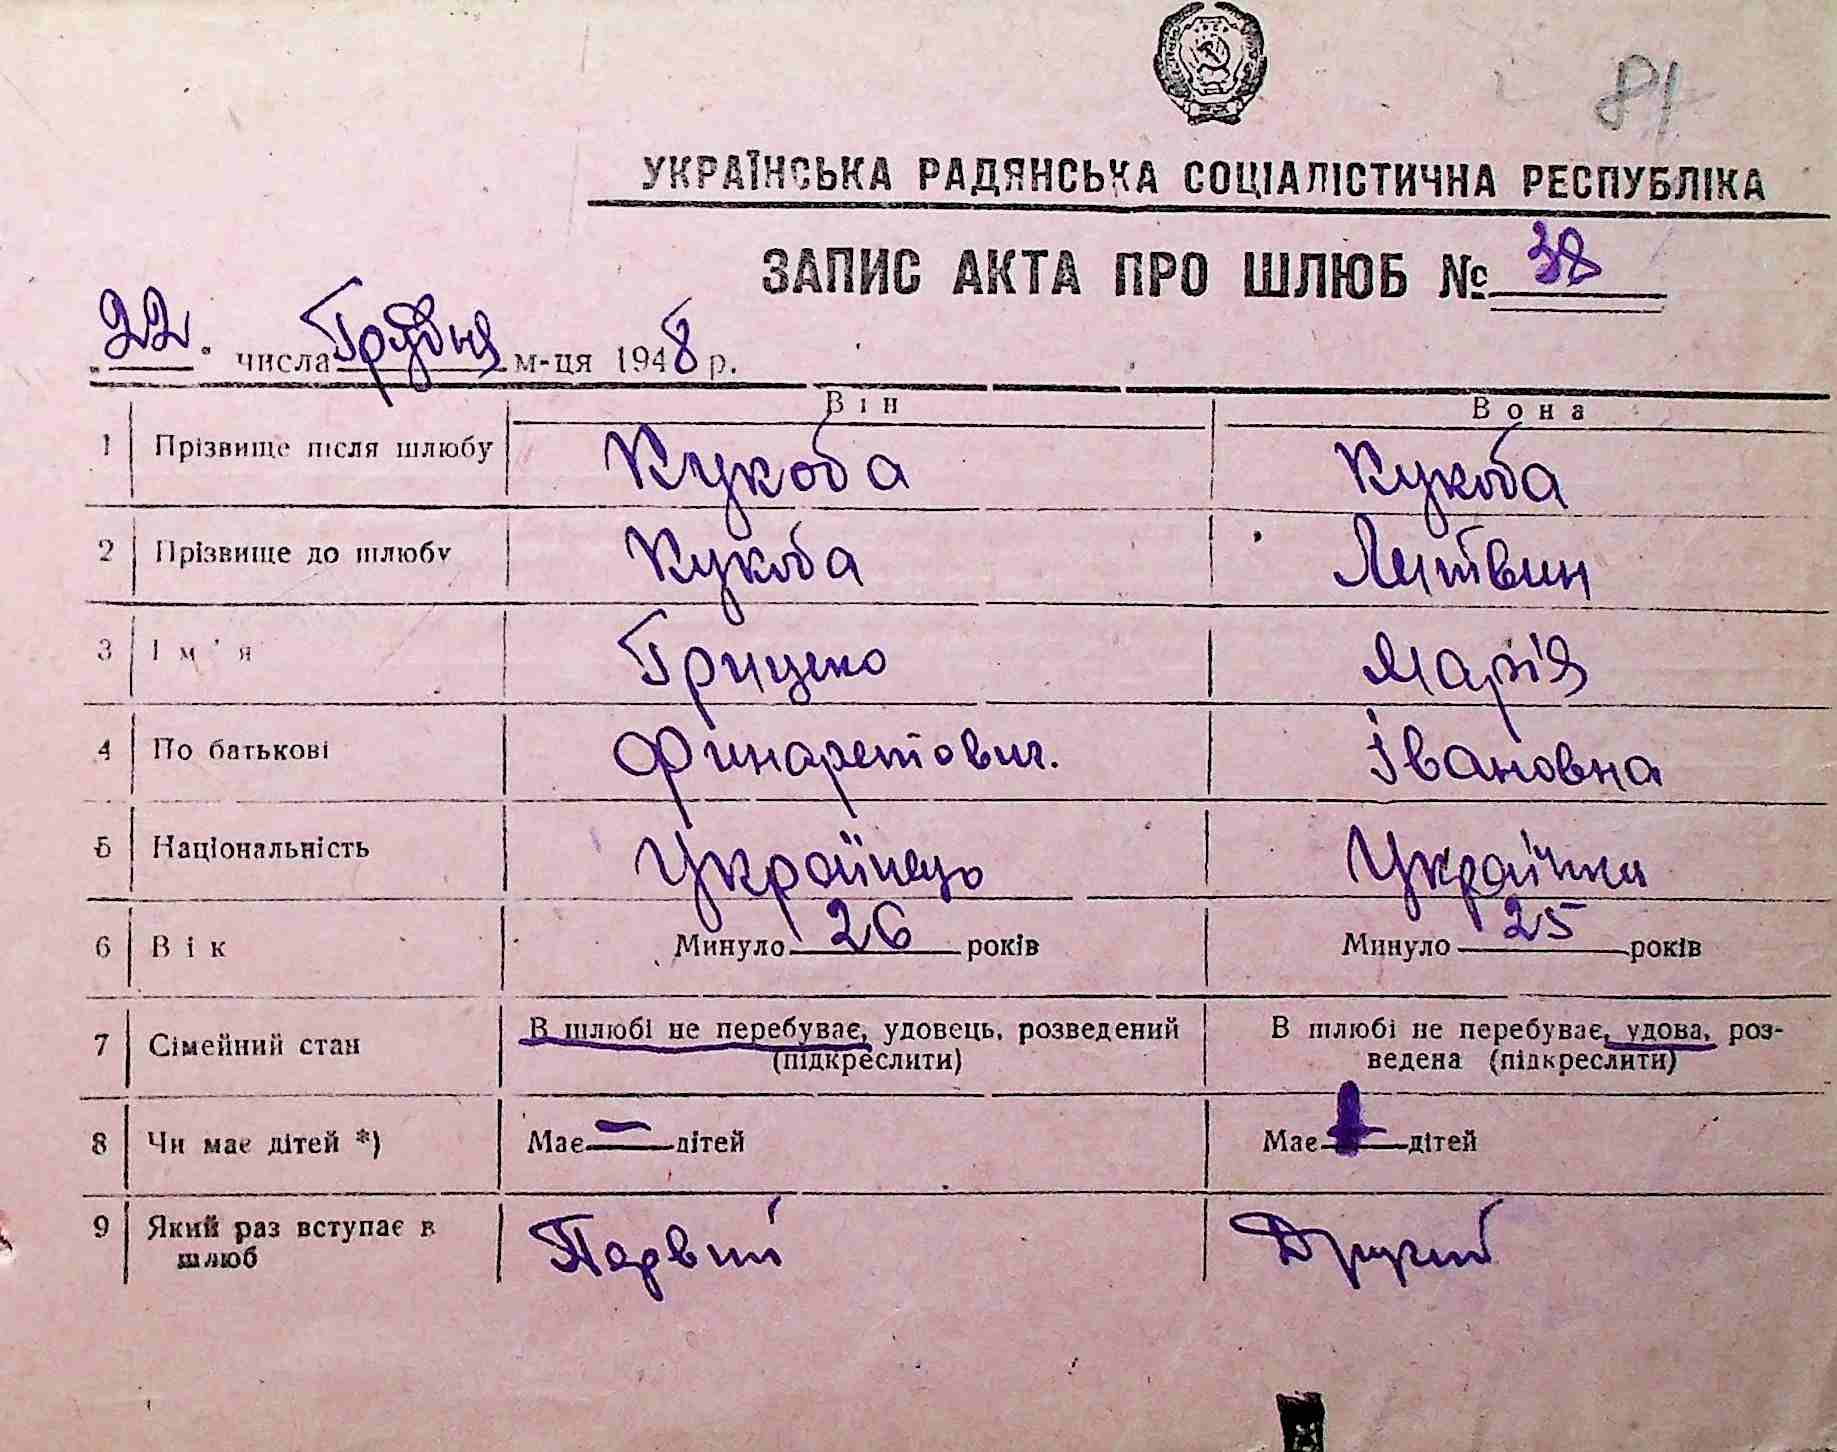 81
УКРАЇНСЬКА РАДЯНСЬКА СОЦІАЛІСТИЧНА РЕСПУБЛІКА
ЗАПИС АКТА ПРО ШЛЮБ № 38
22 числа Грудня м-ця 1948 р.
Він Вона
1 Прізвище після шлюбу Кукоба Кукоба
2 Прізвище до шлюбу Кукоба Литвин
3 Ім'я Грицько Марія
4 По батькові Финаретович. Івановна
5 Національність Українець Українка
6 Вік Минуло 26 років Минуло 25 років
7 Сімейний стан В шлюбі не перебуває, удовець, розведений (підкреслити) В шлюбі не перебуває, удова, роз-
ведена (підкреслити)
8 Чи має дітей *) Має — дітей Має дітей
9 Який раз вступає в шлюб Первий Другий